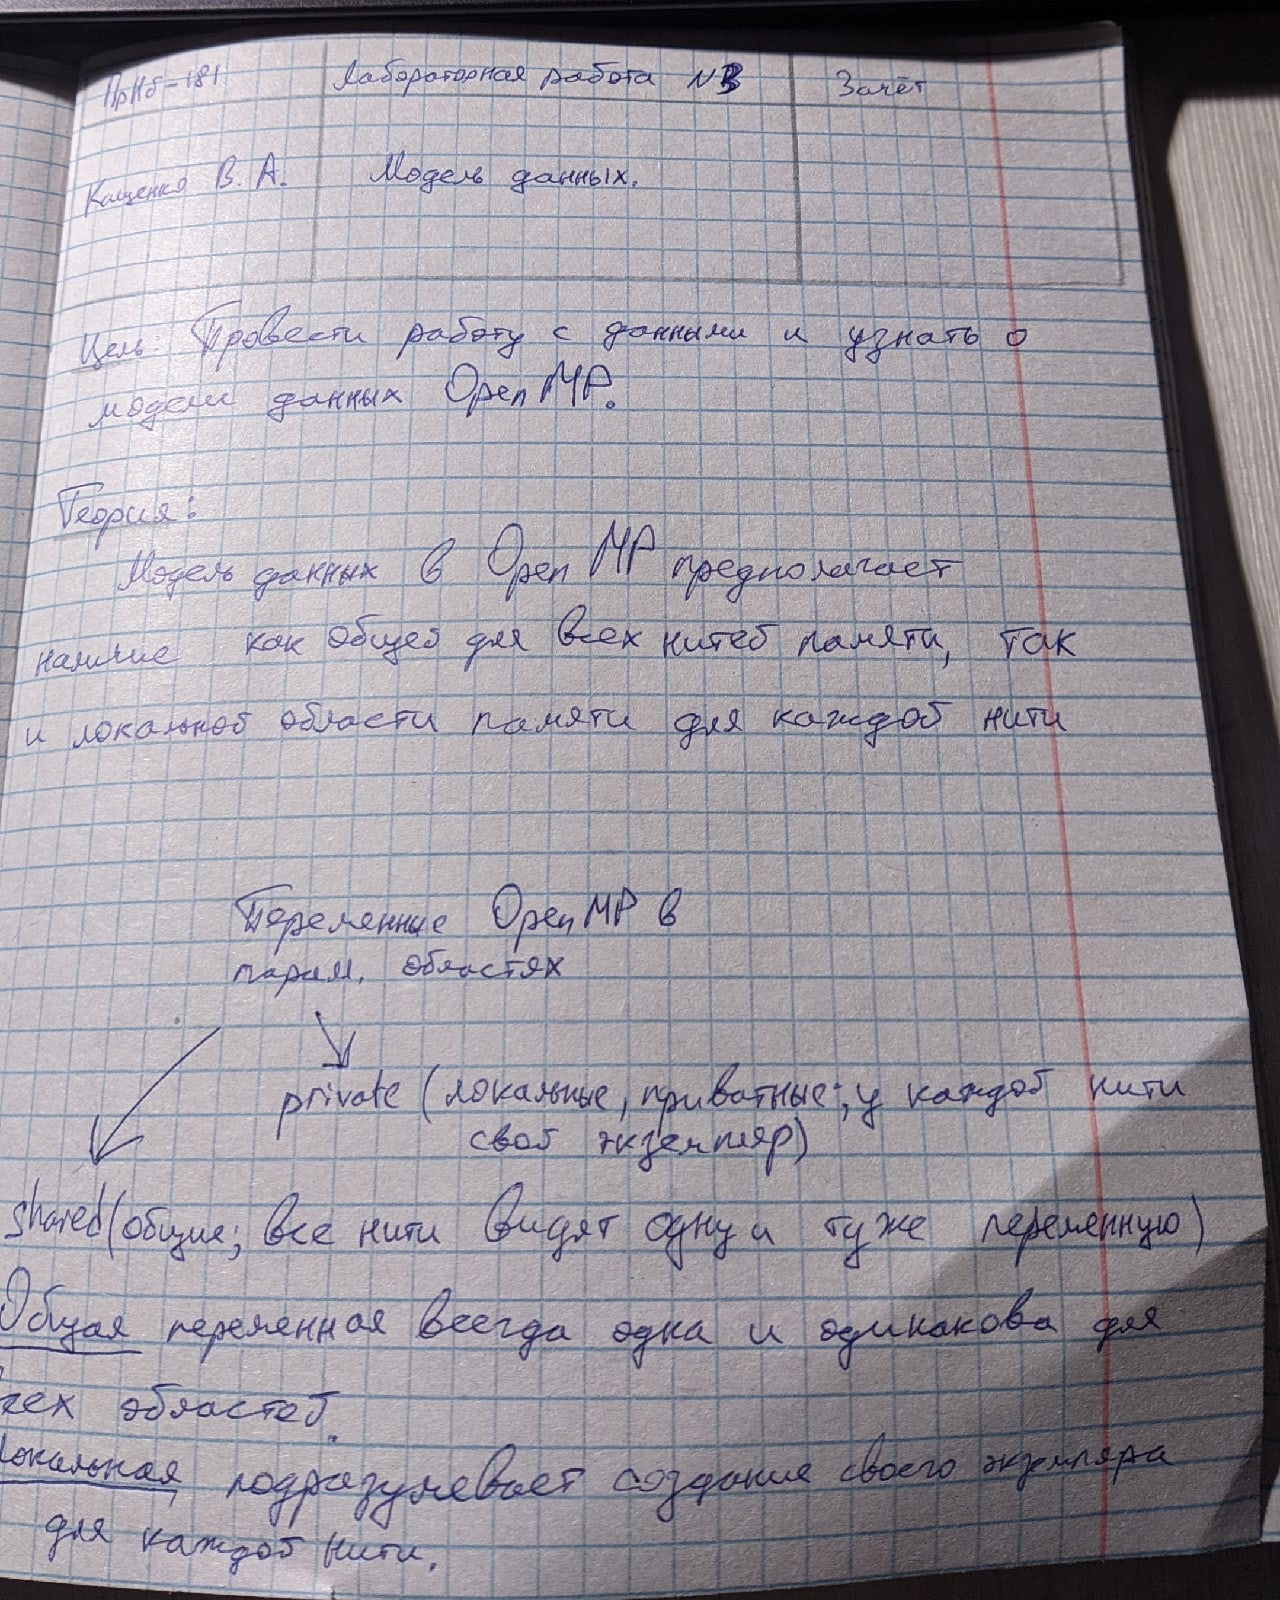 ПрИб-181 Лабораторная работа №3 Зачёт
Кащенко В. А. Модель данных.
Цель: Провести работу с данными и узнать о
модели данных OpenMP.
Теория:
Модель данных в OpenMP предполагает
наличие как общей для всех нитей памяти, так
и локальной области памяти для каждой нити
Переменные OpenMP в
парал. областях
private (локальные, приватные; у каждой нити
свой экземпляр)
shared (общие; все нити видят одну и ту же переменную)
Общая переменная всегда одна и одинакова для
всех областей.
Локальная подразумевает создание своего экземпляра
для каждой нити.